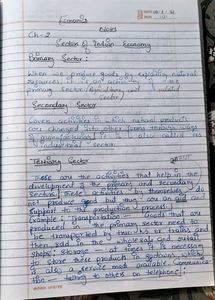 Economics
Notes
Ch-2
Sectors of Indian Economy
Primary Sector:
When we produce goods by exploiting natural
resources it is an activity of the
primary sector (Agriculture and related
sector)
Secondary Sector
Covers activities in which natural products
are changed into other forms through ways
of manufacturing. It is also called as
industrial sector.
Tertiary Sector
These are the activities that help in the
development of the primary and secondary
sector. These activities by themselves do
not produce good but they are an aid and
support to the production process.
Example: Transportation - Goods that are
produced in the primary sector need to
be transported by trucks or trains and
then sold in the wholesale and retail
shops; Storage - at times it is necessary
to store these products in godowns, which
is also a service made Communica
tion - talking to others on telephone;